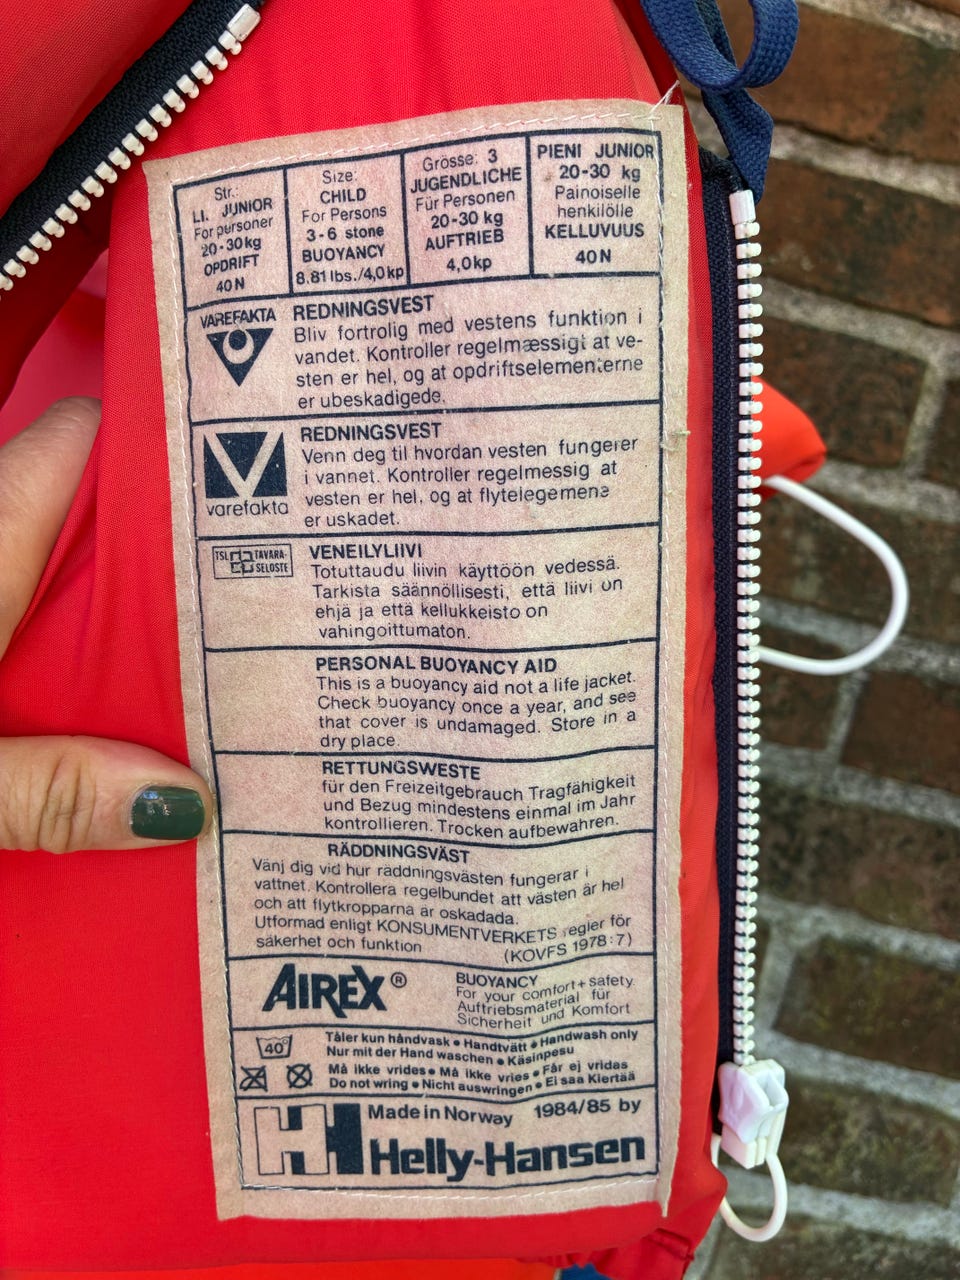 Str.:
LI. JUNIOR
For personer
20-30 kg
OPDRIFT
40 N
Size:
CHILD
For Persons
3-6 stone
BUOYANCY
8.81 lbs./4,0 kp
Grösse: 3
JUGENDLICHE
Für Personen
20-30 kg
AUFTRIEB
4,0 kp
PIENI JUNIOR
20-30 kg
Painoiselle
henkilölle
KELLUVUUS
40 N
VAREFAKTA
REDNINGSVEST
Bliv fortrolig med vestens funktion i
vandet. Kontroller regelmæssigt at ve-
sten er hel, og at opdriftselementerne
er ubeskadigede.
varefakta
REDNINGSVEST
Venn deg til hvordan vesten fungerer
i vannet. Kontroller regelmessig at
vesten er hel, og at flytelegemene
er uskadet.
TSL TAVARA-
SELOSTE
VENEILYLIIVI
Totuttaudu liivin käyttöön vedessä.
Tarkista säännöllisesti, että liivi on
ehjä ja että kellukkeisto on
vahingoittumaton.
PERSONAL BUOYANCY AID
This is a buoyancy aid not a life jacket.
Check buoyancy once a year, and see
that cover is undamaged. Store in a
dry place.
RETTUNGSWESTE
für den Freizeitgebrauch Tragfähigkeit
und Bezug mindestens einmal im Jahr
kontrollieren. Trocken aufbewahren.
RÄDDNINGSVÄST
Vänj dig vid hur räddningsvästen fungerar i
vattnet. Kontrollera regelbundet att västen är hel
och att flytkropparna är oskadada.
Utformad enligt KONSUMENTVERKETS regler för
säkerhet och funktion (KOVFS 1978:7)
AIREX®
BUOYANCY
For your comfort + safety
Auftriebsmaterial für
Sicherheit und Komfort
40°
Tåler kun håndvask • Handtvätt • Handwash only
Nur mit der Hand waschen • Käsinpesu
Må ikke vrides • Må ikke vries • Får ej vridas
Do not wring • Nicht auswringen • Ei saa Kiertää
H H
Made in Norway 1984/85 by
Helly-Hansen